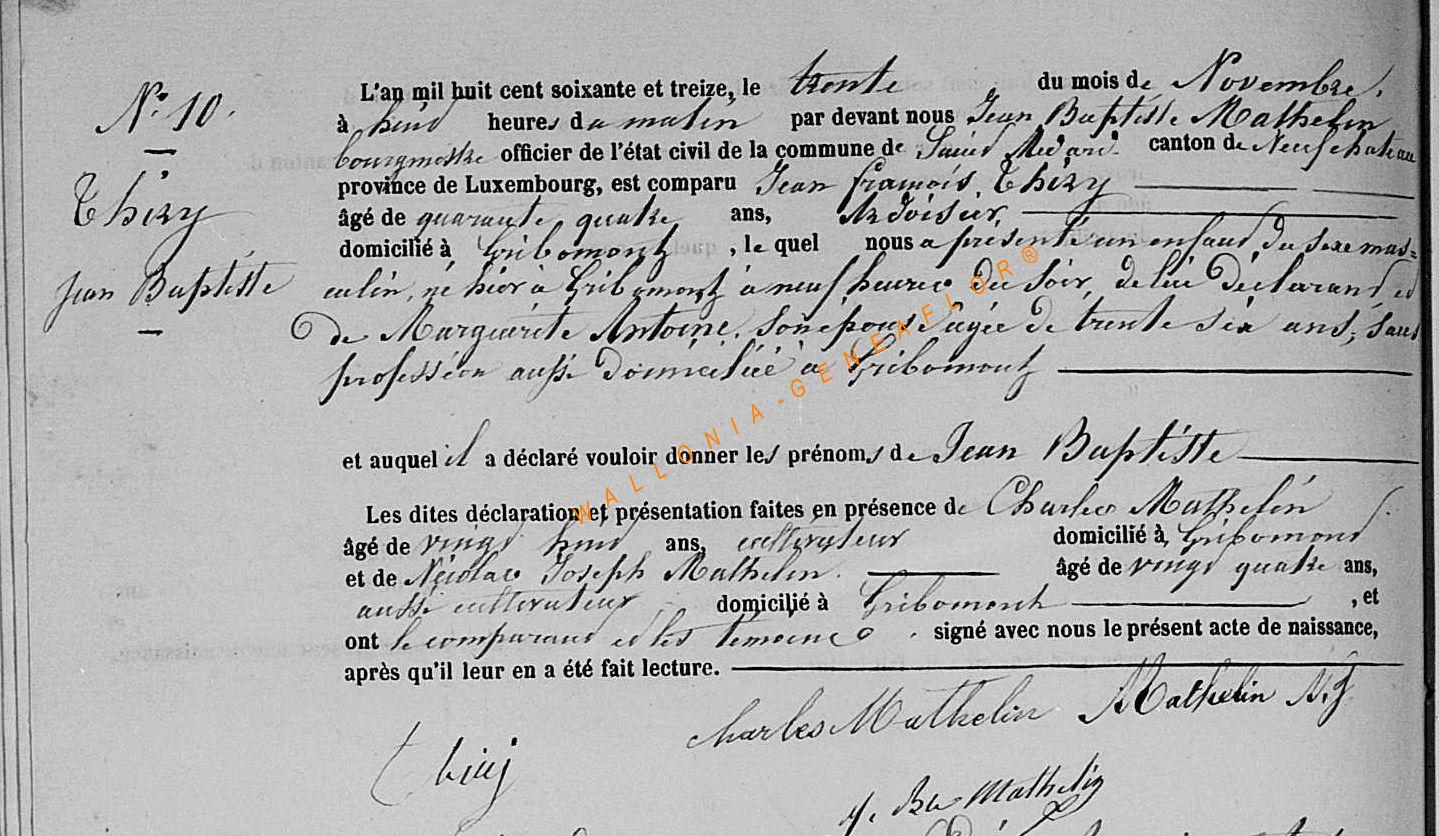 N° 10.
Thiry
Jean Baptiste
L'an mil huit cent soixante et treize, le trente du mois de Novembre,
à huit heures du matin par devant nous Jean Baptiste Mathelin
bourgmestre officier de l'état civil de la commune de Saint Médard canton de Neufchateau
province de Luxembourg, est comparu Jean François Thiry
âgé de quarante quatre ans, Ardoisier,
domicilié à Gribomont, le quel nous a présenté un enfant du sexe mas=
culin, né hier à Gribomont à neuf heures du soir, de lui déclarant et
de Marguerite Antoine, son épouse âgée de trente six ans, sans
profession aussi domiciliée à Gribomont
et auquel il a déclaré vouloir donner les prénoms de Jean Baptiste
Les dites déclaration et présentation faites en présence de Charles Mathelin
âgé de vingt huit ans, cultivateur domicilié à Gribomont
et de Nicolas Joseph Mathelin âgé de vingt quatre ans,
aussi cultivateur domicilié à Gribomont, et
ont le comparant et les témoins signé avec nous le présent acte de naissance,
après qu'il leur en a été fait lecture.
Charles Mathelin Mathelin N. J.
Thiry
J. Bte Mathelin
WALLONIA-GENEAFLOR®